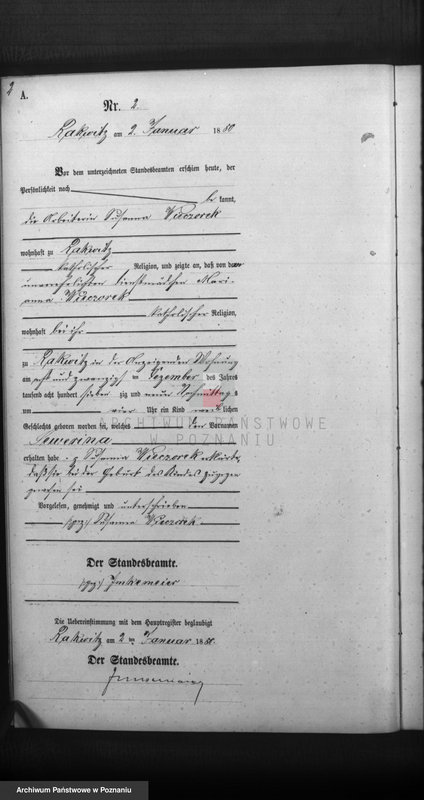 2
A.
Nr. 2.
Rakwitz am 2. Januar 1880
Vor dem unterzeichneten Standesbeamten erschien heute, der
Persönlichkeit nach be kannt,
die Arbeiterin Susanna Wieczorek
wohnhaft zu Rakwitz
katholischer Religion, und zeigte an, daß von der
unverehelichten Dienstmädchen Mari-
anna Wieczorek
katholischer Religion,
wohnhaft bei ihr
zu Rakwitz in der Anzeigenden Wohnung
am acht und zwanzigsten Dezember des Jahres
tausend acht hundert sieben zig und neun Nachmittags
um vier Uhr ein Kind weib lichen
Geschlechts geboren worden sei, welches den Vornamen
Sewerina
erhalten habe. Susanna Wieczorek erklärte,
daß sie bei der Geburt des Kindes zugegen
gewesen sei
Vorgelesen, genehmigt und unterschrieben
gez. Susanna Wieczorek
Der Standesbeamte.
gez.
Die Uebereinstimmung mit dem Hauptregister beglaubigt
Rakwitz am 2 ten Januar 1880.
Der Standesbeamte.
ARCHIWUM PAŃSTWOWE
W POZNANIU
Archiwum Państwowe w Poznaniu